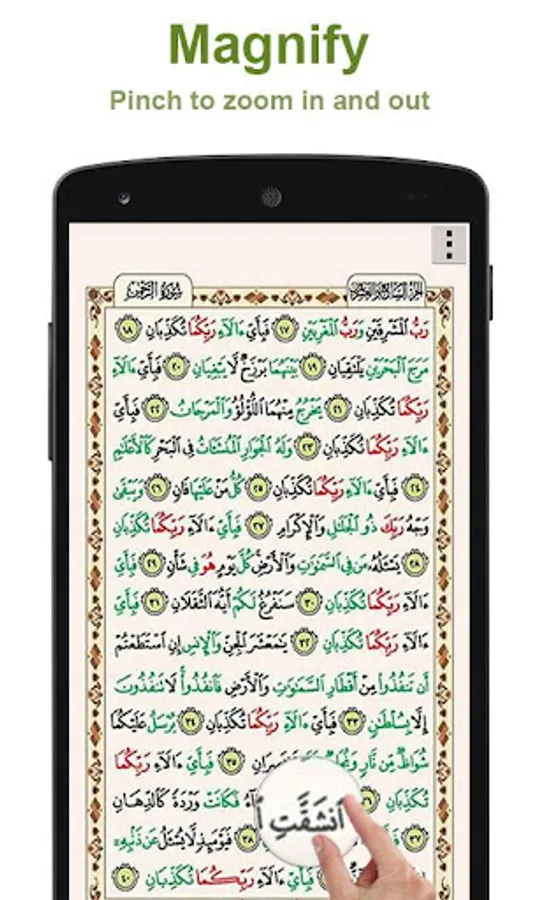 Magnify
Pinch to zoom in and out
الجزء السابع والعشرون
سورة الرحمن
رَبُّ ٱلْمَشْرِقَيْنِ وَرَبُّ ٱلْمَغْرِبَيْنِ ١٧ فَبِأَيِّ ءَالَآءِ رَبِّكُمَا تُكَذِّبَانِ ١٨
مَرَجَ ٱلْبَحْرَيْنِ يَلْتَقِيَانِ ١٩ بَيْنَهُمَا بَرْزَخٌ لَّا يَبْغِيَانِ ٢٠ فَبِأَيِّ ءَالَآءِ
رَبِّكُمَا تُكَذِّبَانِ ٢١ يَخْرُجُ مِنْهُمَا ٱللُّؤْلُؤُ وَٱلْمَرْجَانُ ٢٢ فَبِأَيِّ
ءَالَآءِ رَبِّكُمَا تُكَذِّبَانِ ٢٣ وَلَهُ ٱلْجَوَارِ ٱلْمُنشَـَٔاتُ فِى ٱلْبَحْرِ كَٱلْأَعْلَـٰمِ
٢٤ فَبِأَيِّ ءَالَآءِ رَبِّكُمَا تُكَذِّبَانِ ٢٥ كُلُّ مَنْ عَلَيْهَا فَانٍ ٢٦ وَيَبْقَىٰ
وَجْهُ رَبِّكَ ذُو ٱلْجَلَـٰلِ وَٱلْإِكْرَامِ ٢٧ فَبِأَيِّ ءَالَآءِ رَبِّكُمَا تُكَذِّبَانِ
٢٨ يَسْـَٔلُهُۥ مَن فِى ٱلسَّمَـٰوَٰتِ وَٱلْأَرْضِ كُلَّ يَوْمٍ هُوَ فِى شَأْنٍ ٢٩ فَبِأَيِّ
ءَالَآءِ رَبِّكُمَا تُكَذِّبَانِ ٣٠ سَنَفْرُغُ لَكُمْ أَيُّهَ ٱلثَّقَلَانِ ٣١ فَبِأَيِّ
ءَالَآءِ رَبِّكُمَا تُكَذِّبَانِ ٣٢ يَـٰمَعْشَرَ ٱلْجِنِّ وَٱلْإِنسِ إِنِ ٱسْتَطَعْتُمْ
أَن تَنفُذُوا۟ مِنْ أَقْطَارِ ٱلسَّمَـٰوَٰتِ وَٱلْأَرْضِ فَٱنفُذُوا۟ لَا تَنفُذُونَ
إِلَّا بِسُلْطَـٰنٍ ٣٣ فَبِأَيِّ ءَالَآءِ رَبِّكُمَا تُكَذِّبَانِ ٣٤ يُرْسَلُ عَلَيْكُمَا
شُوَاظٌ مِّن نَّارٍ ٣٥ فَبِأَيِّ ءَالَآءِ رَبِّكُمَا
تُكَذِّبَانِ ٣٦ ٱنشَقَّتِ فَكَانَتْ وَرْدَةً كَٱلدِّهَانِ
٣٧ ٣٨ فَيَوْمَئِذٍ لَّا يُسْـَٔلُ عَن ذَنۢبِهِۦٓ
فَبِأَيِّ ءَالَآءِ رَبِّكُمَا تُكَذِّبَانِ ٤٠